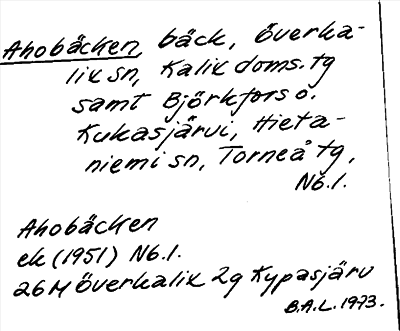 Ahobäcken, bäck, Överka-
lix sn, Kalix doms. tg
samt Björkfors o.
Kukasjärvi, Hieta-
niemi sn, Torneå tg,
Nb. l.
Ahobäcken
ek (1951) Nb. l.
26M Överkalix 2g Kypasjärv
B.A.L. 1973.